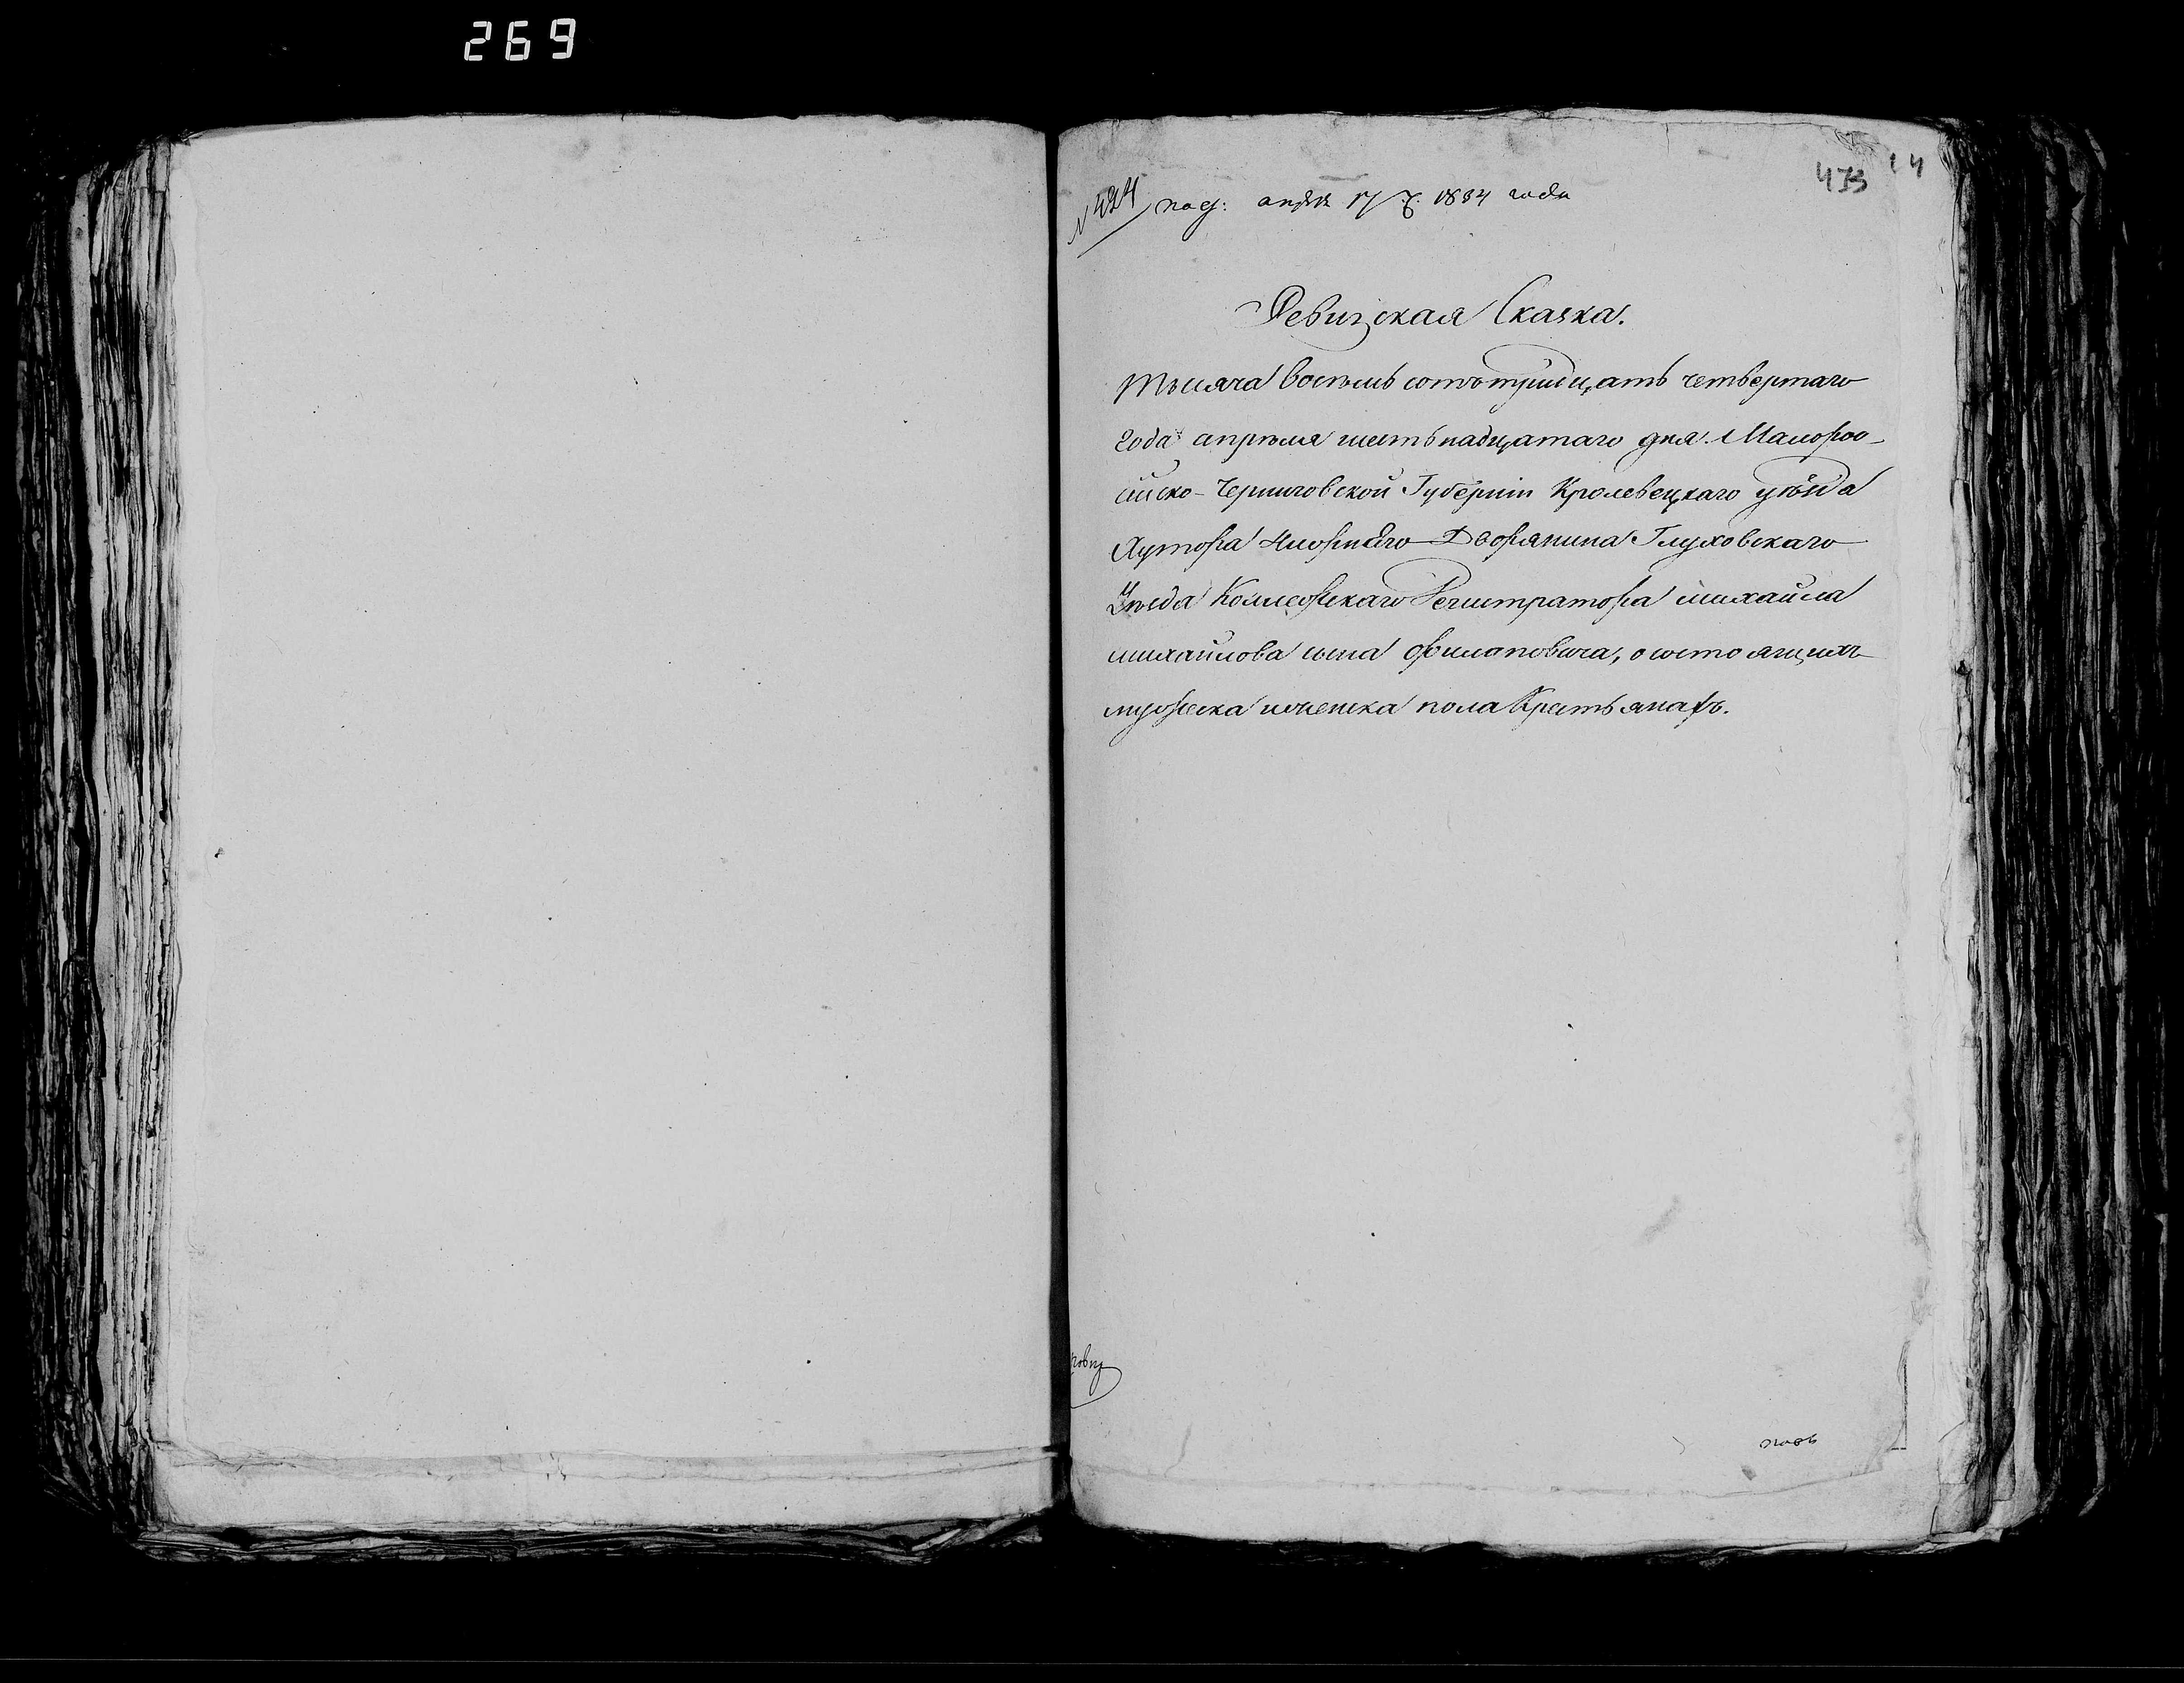 269
473
14
№ 424 под: апрѣл 17 д. 1834 года
Ревизская Сказка.
Тысяча восѣмь сотъ тридцать четвертаго
года апрѣля шестьнадцатаго дня. Малорос-
сійско-Черниговской Губерніи Кролевецкаго уѣзда
Хутора Дворянина Глуховскаго
Уѣзда Коллежскаго Регистратора михайла
михайлова сына Филоновича, о состоящихъ
мужеска иженска пола Крестьянахъ.